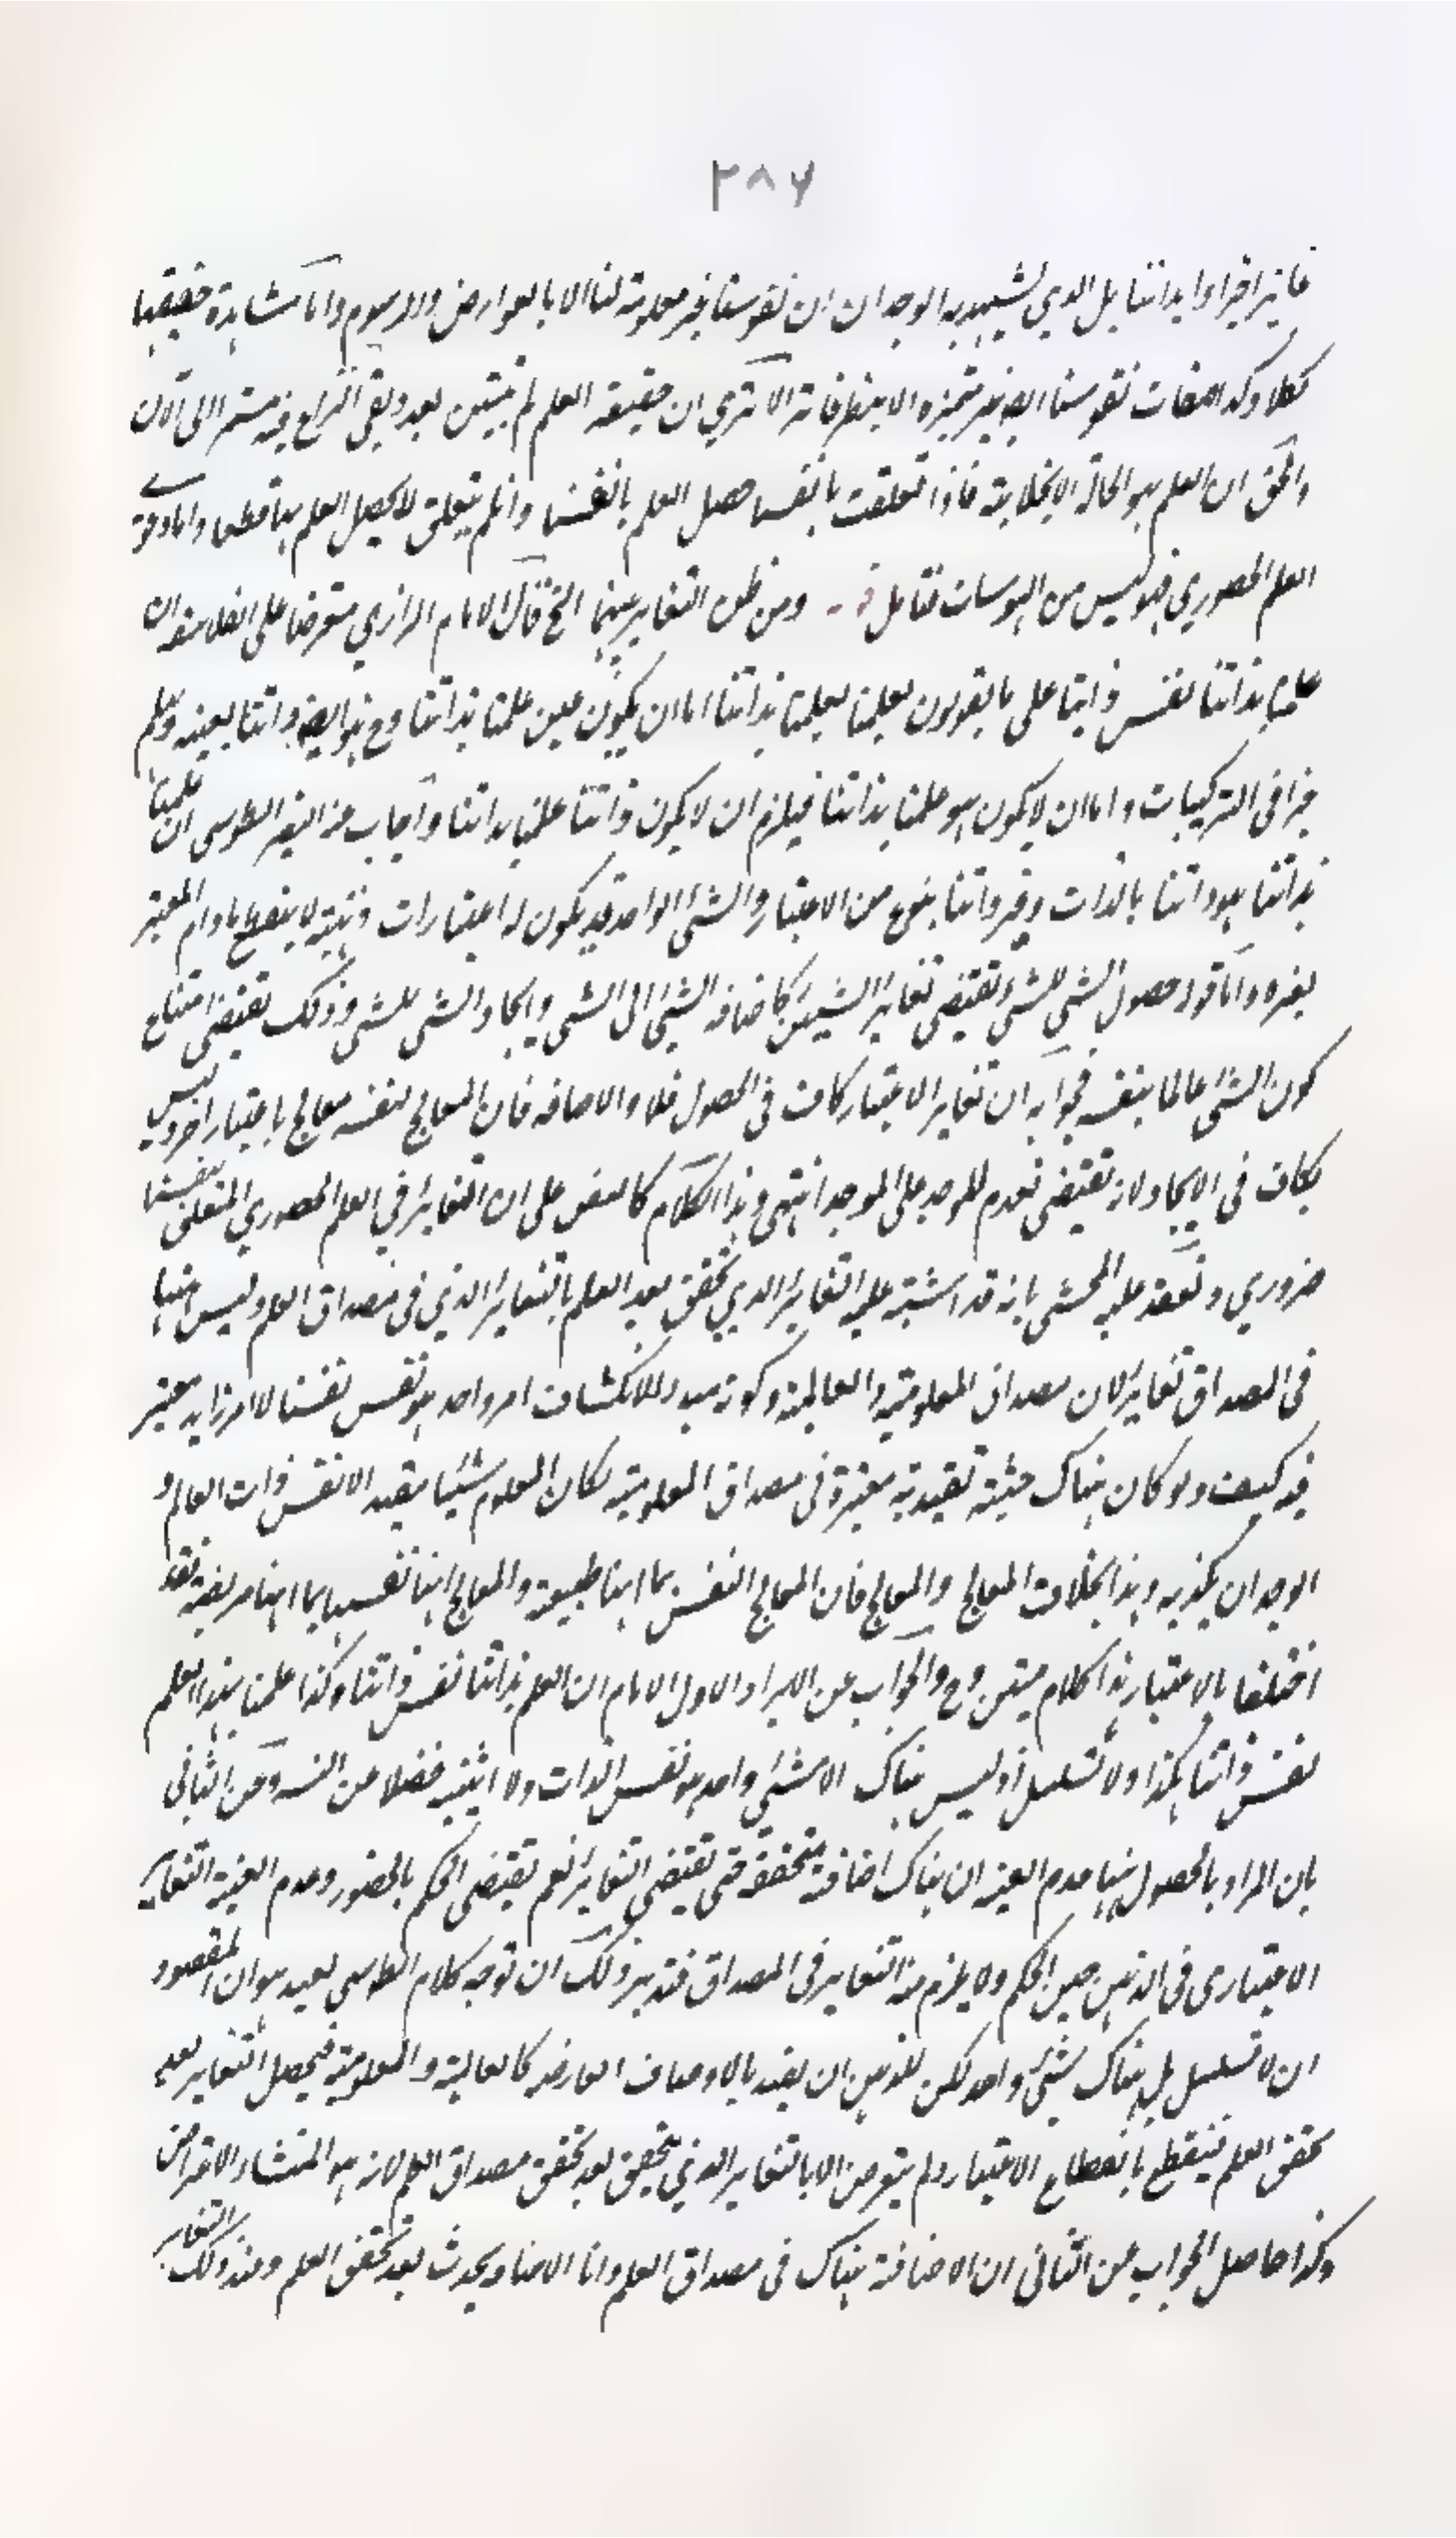 ٢٨٦
بل الذي يشهد به الوجدان ان نفوسنا غير معلومة لنا الا بالعوارض والرسوم واما مشاهدة حقيقتها
فكلا وكذا صفات نفوسنا ايض غير متميزة الا بنظر فانه الا ترى ان حقيقة العلم لم يتبين بعد وبقي النزاع فيه مستمرا الى الآن
والحق ان العلم هو الحالة الانجلائية فاذا تعلقت بانفسنا حصل العلم بانفسنا وان لم يتعلق لا يحصل العلم بها قطعا واما دعوى
العلم الحضوري فهو ليس من الهوسات فتأمل فيه - ومن ظن التغاير بينهما الخ قال الامام الرازي معترضا على الفلاسفة ان
علمنا بذاتنا نفس ذاتنا على ما يقولون فعلمنا بعلمنا بذاتنا اما ان يكون عين علمنا بذاتنا وح هو ايض ذاتنا بعينه وهلم
جرا في التركيبات واما ان لا يكون هو علمنا بذاتنا فيلزم ان لا يكون ذاتنا علمنا بذاتنا واجاب عنه النصير الطوسي ان علمنا
بذاتنا هو ذاتنا بالذات وغير ذاتنا بنوع من الاعتبار والشيء الواحد قد يكون له اعتبارات ذهنية لا ينقطع ما دام المعتبر
يعتبره واما قوله حصول الشيء للشيء تقتضي تغاير الشيئين كاضافة الشيء الى الشيء وايجاد الشيء للشيء وذلك تقتضي امتناع
كون الشيء عالما بنفسه فجوابه ان تغاير الاعتبار كاف في الحصول فلا والاضافة فان المعالج لنفسه معالج باعتبار آخر وليس
بكاف في الايجاد لانه تقتضي تقدم الموجد على الموجد انتهى وهذا الكلام كالنص على ان التغاير في العلم الحضوري المتعلق بنفسنا
ضروري وتعقبه عليه المحشي بانه قد اشتبه عليه التغاير الذي تحقق بعد العلم بالتغاير الذي في مصداق العلم وليس ههنا
في المصداق تغاير لان مصداق المعلومية والعالمية وكونه مبدء للانكشاف امر واحد هو نفس نفسنا لا امر زايد معتبر
فيه كيف ولو كان هناك حيثية تقييدية معتبرة في مصداق المعلومية لكان المعلوم شيئا مقيدا لا نفس ذات العالم و
الوجدان يكذبه وهذا بخلاف المعالج والمعالج فان المعالج النفس بما انها طبيعة والمعالج انها نفسها بما انها مريضة فقد
اختلفا بالاعتبار هذا كلام متين وح والجواب عن الايراد الاول للامام ان العلم بذاتنا نفس ذاتنا وكذا علمنا بهذا العلم
نفس ذاتنا هكذا ولا تسلسل اذ ليس هناك الا شيء واحد هو نفس الذات ولا اثنينية فضلا عن التسلسل وعن الثاني
بان المراد بالحصول ههنا عدم الغيبة ان هناك اضافة متحققة حتى تقتضي التغاير نعم يقتضي الحكم بالحضور وعدم الغيبة التغاير
الاعتباري في الذهن حين الحكم ولا يلزم منه التغاير في المصداق فتدبر ولك ان توجه كلام الطوسي بعيد هو ان المقصود
ان لا تسلسل بل هناك شيء واحد لكن للذهن ان يقيد بالاوصاف العارضة كالعالمية والمعلومية فيحصل التغاير بعد
تحقق العلم فينقطع بانقطاع الاعتبار ولم يتعرض الا بالتغاير الذي تحقق بعد تحقق مصداق العلم لانه هو المنشاء للاعتراض
وكذا حاصل الجواب عن الثاني ان الاضافة هناك في مصداق العلم وانما الاضافة يحدث بعد تحقق العلم وعند ذلك التغاير